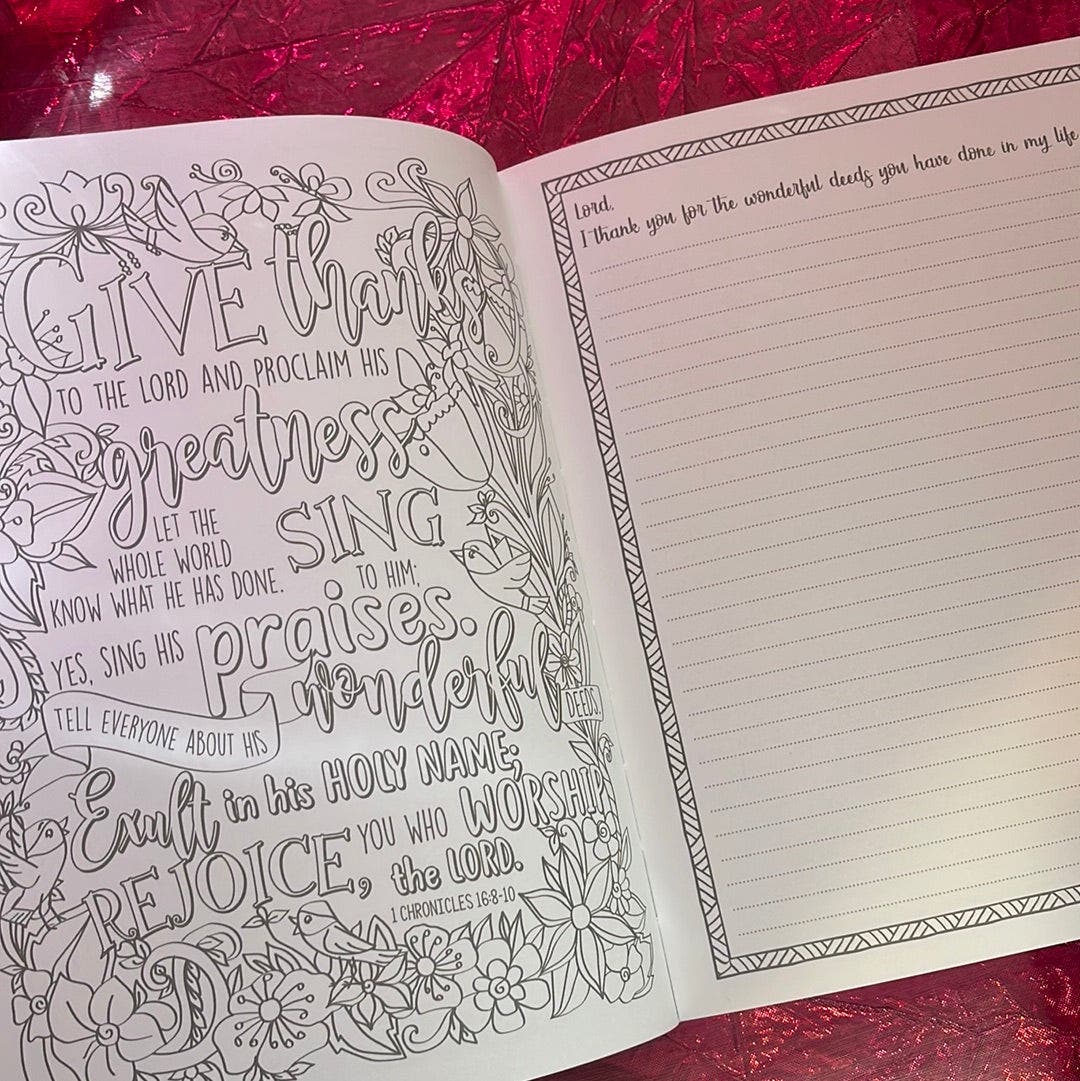 GIVE thanks
TO THE LORD AND PROCLAIM HIS
greatness.
LET THE
WHOLE WORLD
KNOW WHAT HE HAS DONE.
SING
TO HIM;
YES, SING HIS praises.
TELL EVERYONE ABOUT HIS
wonderful
DEEDS.
Exult in his HOLY NAME;
REJOICE, YOU WHO WORSHIP
the LORD.
1 CHRONICLES 16:8-10
Lord,
I thank you for the wonderful deeds you have done in my life